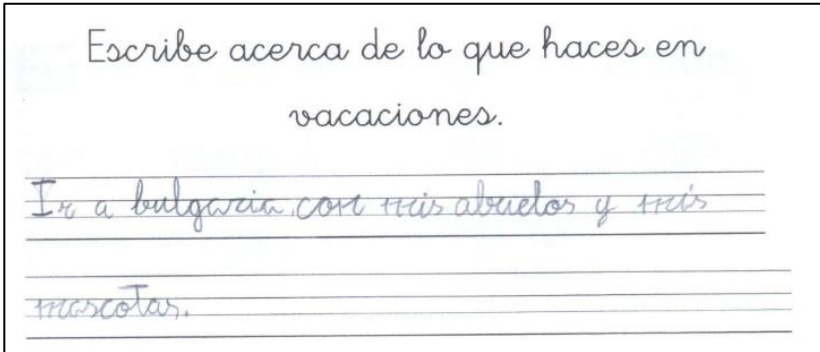 Escribe acerca de lo que haces en
vacaciones.
Ir a bulgaria con mis abuelos y mis
mascotas.